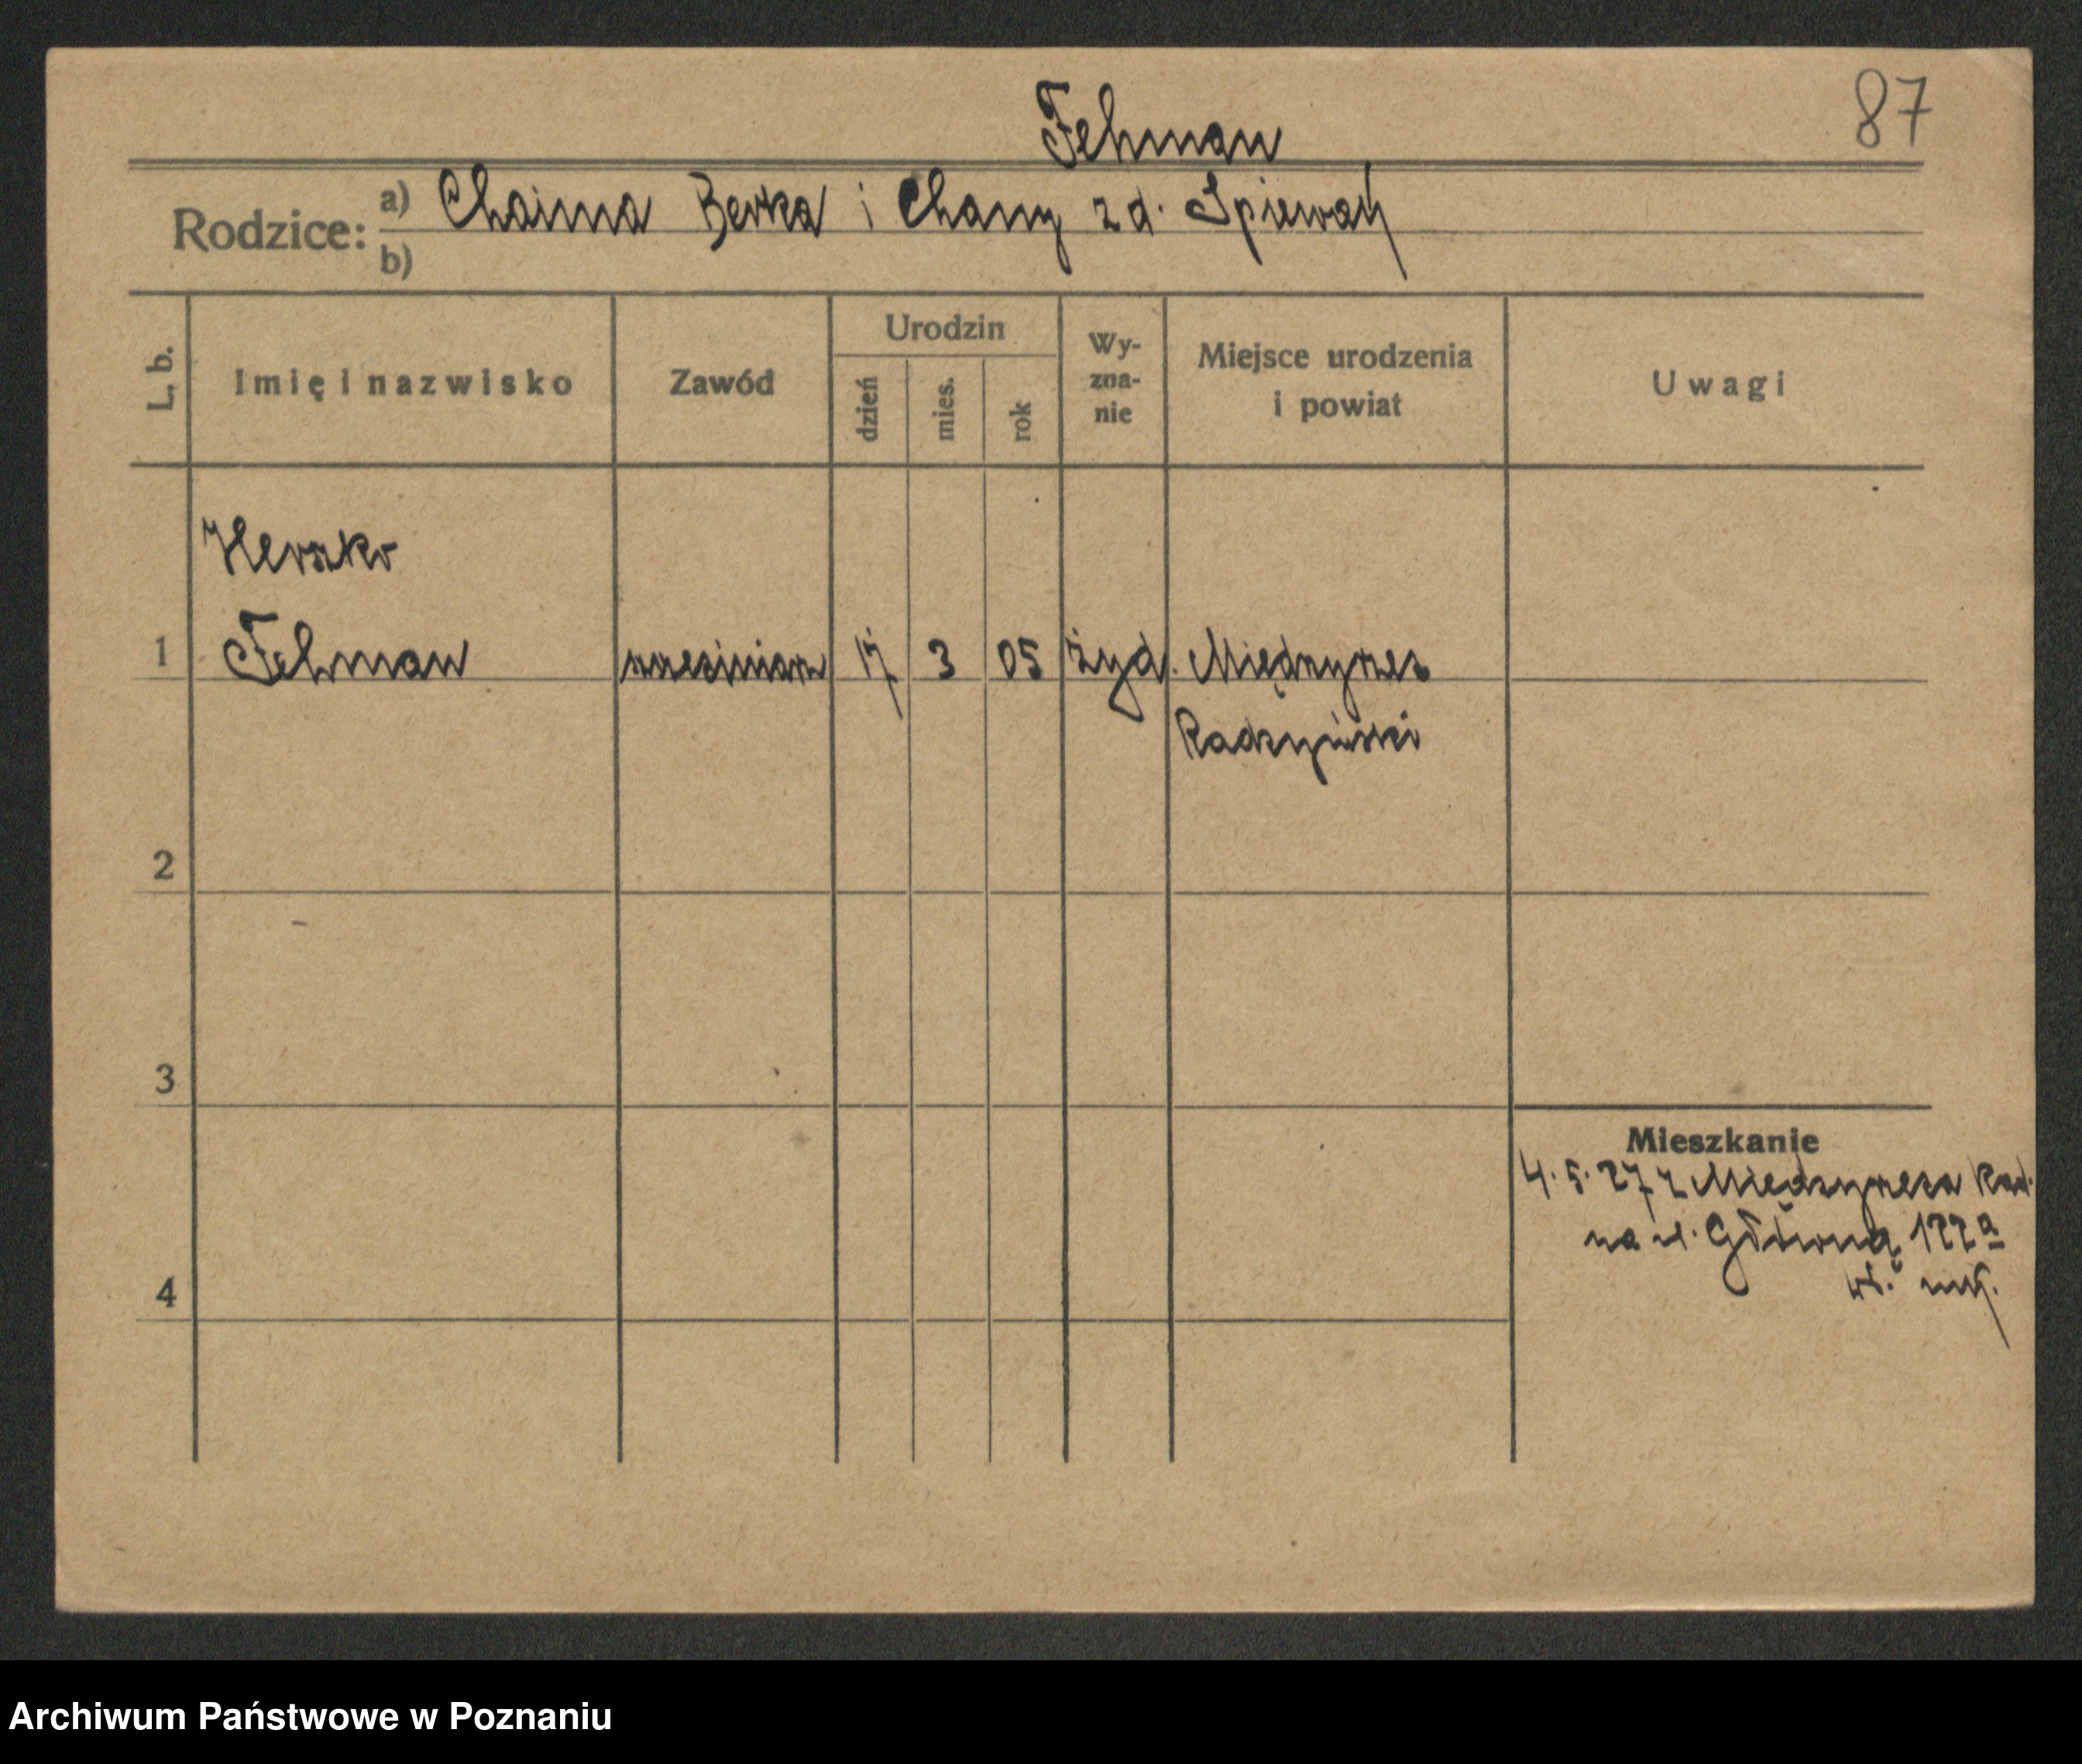 Fehman
87
Rodzice: a) Chaima Berka i Chany z d. Śpiewak
b)
L. b.
Imię i nazwisko
Zawód
Urodzin
dzień
mies.
rok
Wy-
zna-
nie
Miejsce urodzenia
i powiat
Uwagi
Herszko
1 Fehman 17 3 05 żyd. Międzyrzec
Radzyński
2
3
4
Mieszkanie
4.5.27 z Międzyrzeca Rad.
na ul. Główną 122a
Archiwum Państwowe w Poznaniu